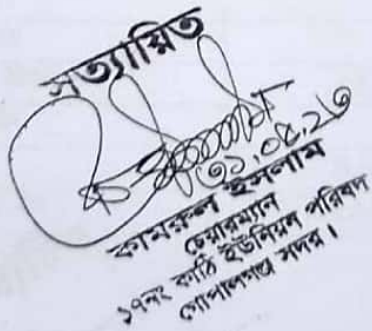 সত্যায়িত
৩১.০৫.২৩
কামরুল ইসলাম
চেয়ারম্যান
১৭নং কাঠি ইউনিয়ন পরিষদ
গোপালগঞ্জ সদর।